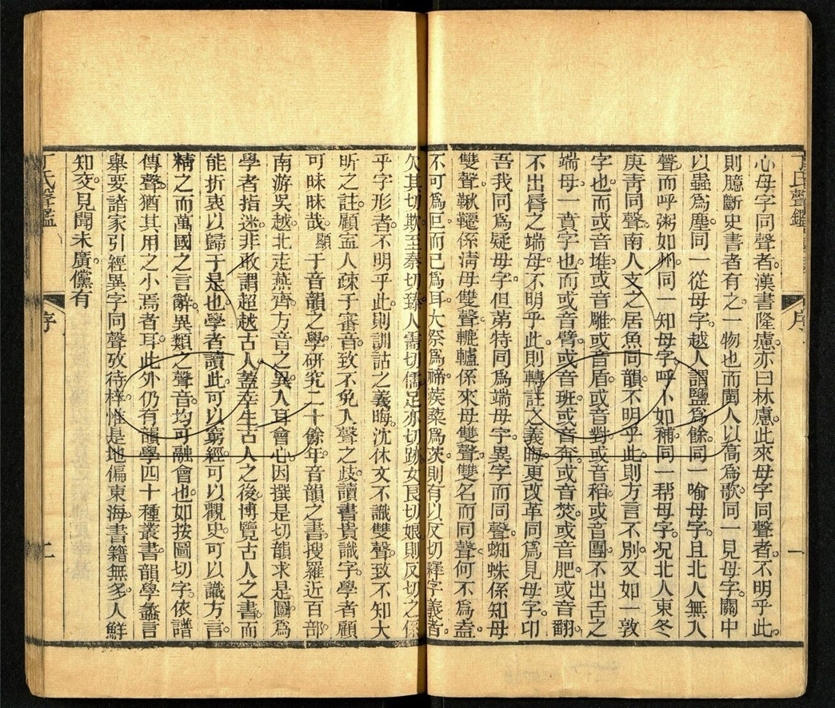 心母字同聲者漢書隆慮亦曰林慮此來母字同聲者不明乎此
則臆斷史書者有之一物也而閩人以高爲歌同一見母字關中
以蟲爲塵同一從母字越人謂鹽爲餘同一喻母字且北人無入
聲而呼粥如州同一知母字呼卜如補同一幫母字况北人東冬
庚青同聲南人支之居魚同韻不明乎此則方言不別又如一敦
字也而或音堆或音雕或音盾或音對或音稻或音團不出舌之
端母一賁字也而或音臂或音班或音奔或音焚或音肥或音翻
不出唇之端母不明乎此則轉註之義晦更改革同爲見母字卬
吾我同爲疑母字但弟特同爲端母字異字而同聲蜘蛛係知母
雙聲鞦韆係淸母雙聲轆轤係來母雙聲雙名而同聲何不爲盍
不可爲叵而已爲耳大祭爲禘蒺藜爲茨則有以反切釋字義者
欠其切欺至秦切臻人需切儒足亦切跡女良切娘則反切之係
乎字形者不明乎此則訓詁之義晦沈休文不識雙聲致不知大
昕之註顧寗人疎于審音致不免入聲之歧讀書貴識字學者顧
可昧昧哉顯于音韻之學研究二十餘年音韻之書搜羅近百部
南游吳越北走燕齊方音之異入耳會心因撰是切韻求是圖爲
學者指迷非敢謂超越古人蓋幸生古人之後博覽古人之書而
能折衷以歸于是也學者讀此可以窮經可以觀史可以識方言
精之而萬國之言辭異類之聲音均可融會也如按圖切字依譜
傳聲猶其用之小焉者耳此外仍有韻學四十種叢書韻學蠡言
舉要諸家引經異字同聲攷待梓惟是地偏東海書籍無多人鮮
知交見聞未廣儻有
丁氏聲鑑
序
二
丁氏聲鑑
序
一